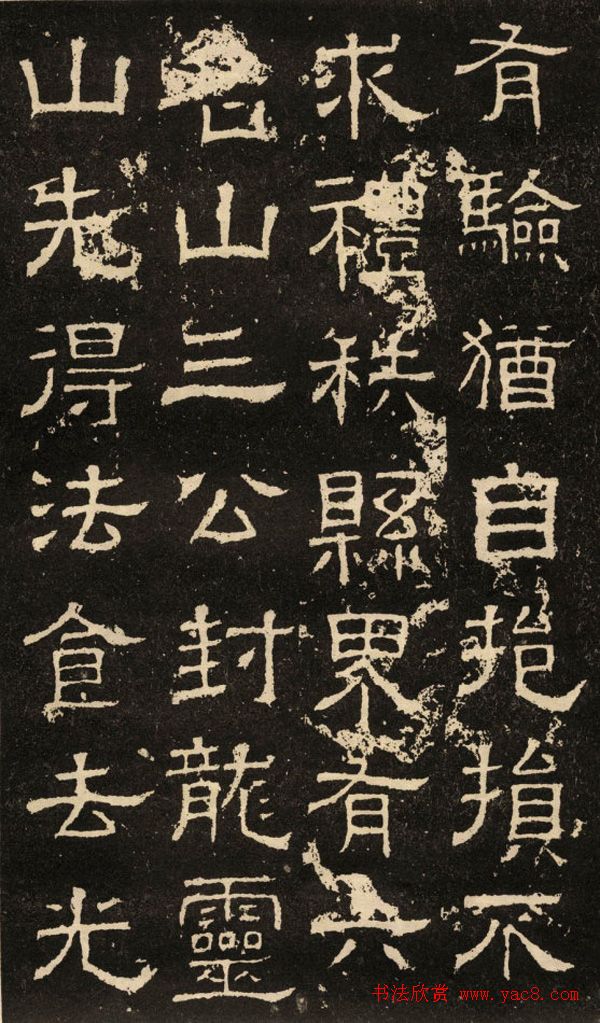 有驗猶自挹損不
求禮秩縣界有六
名山三公封龍靈
山先得法食去光
书法欣赏 www.yac8.com